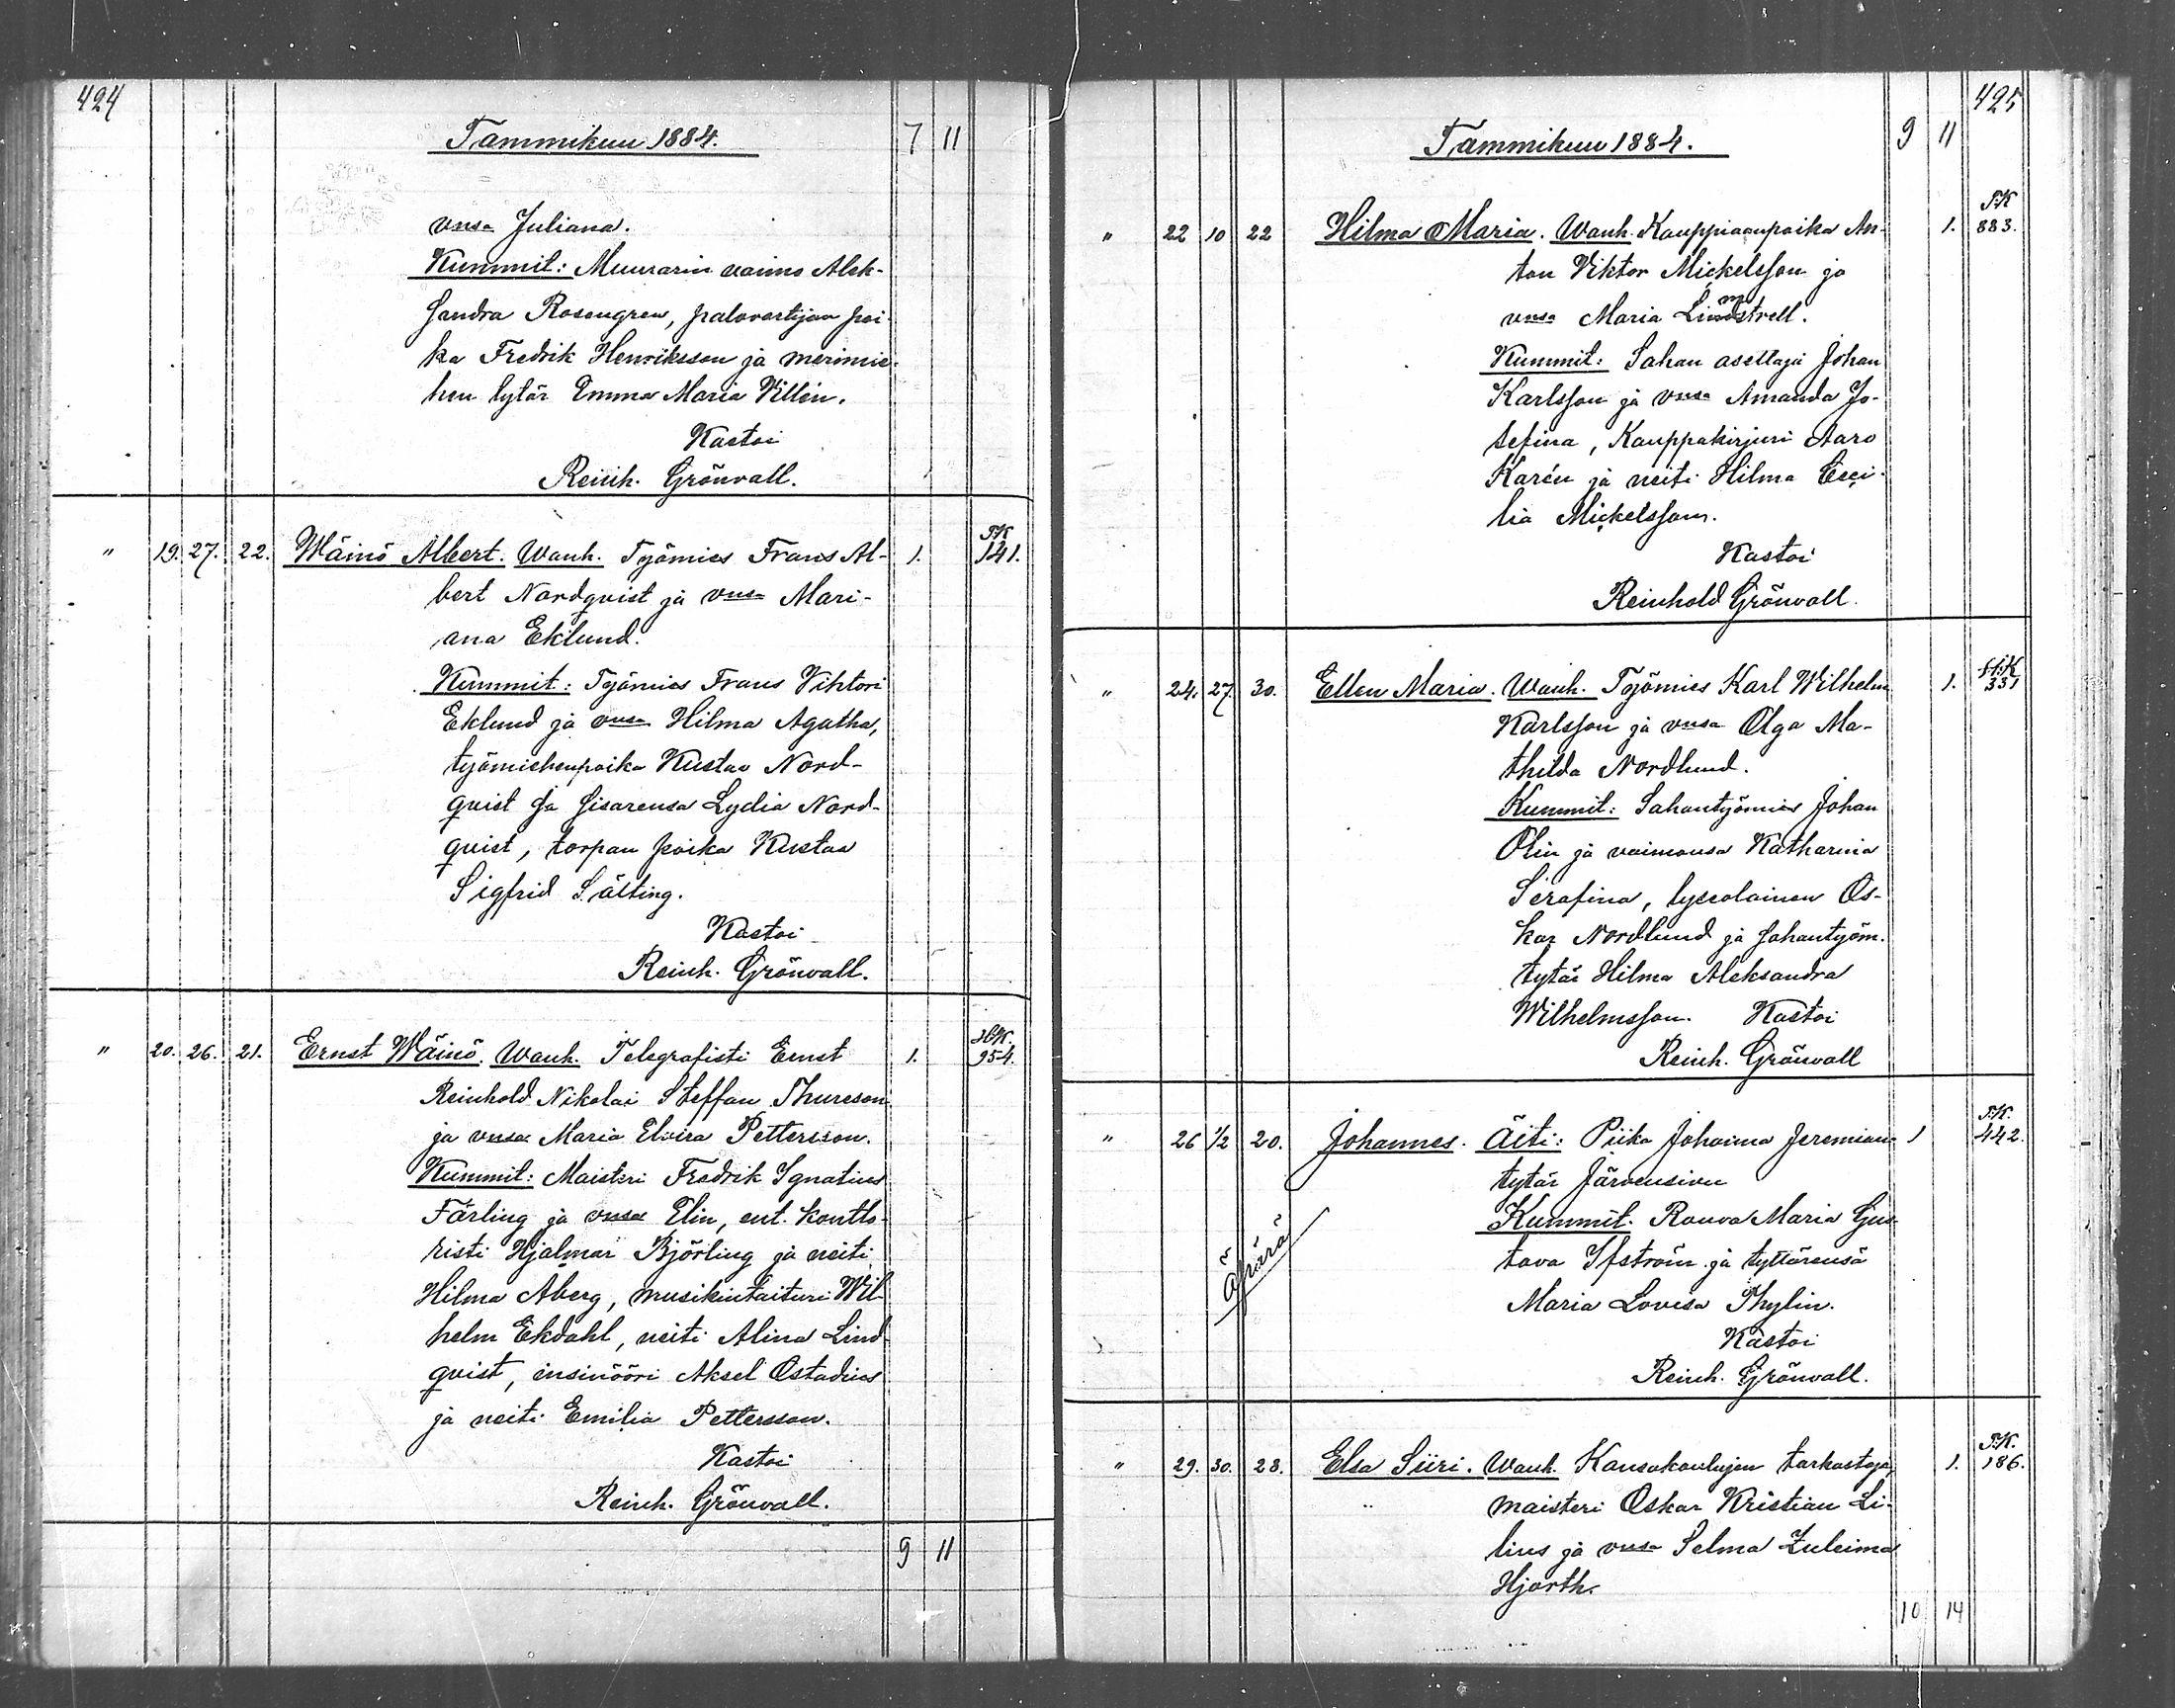 424
Tammikuu 1884. 7 11
vmsa Juliana.
Kummit: Muurarin vaimo Alek-
sandra Rosengren, palovartijan poi-
ka Fredrik Henriksson ja merimie-
hen tytär Emma Maria Villén.
Kastoi
Reinh. Grönvall.
" 19. 27. 22. Wäinö Albert. Wanh. Työmies Frans Al- 1. TK 141.
bert Nordqvist ja vmsa Mari-
ana Eklund.
Kummit: Työmies Frans Viktori
Eklund ja vmsa Hilma Agatha,
työmiehenpoika Kustas Nord-
qvist ja sisarensa Lydia Nord-
qvist, torpan poika Kustaa
Sigfrid Sälting.
Kastoi
Reinh. Grönvall.
" 20. 26. 21. Ernst Wäinö. Wanh. Telegrafisti Ernst 1. 954.
Reinhold Nikolai Steffan Thureson
ja vmsa Maria Elvira Pettersson.
Kummit: Maisteri Fredrik Ignatius
Färling ja vmsa Elin, ent. kontto-
risti Hjalmar Björling ja neiti
Hilma Åberg, musikintaituri Wil-
helm Ekdahl, neiti Alina Lind-
qvist, insinööri Aksel Ostadius
ja neiti Emilia Pettersson.
Kastoi
Reinh. Grönvall.
9 11
425
Tammikuu 1884. 9 11
" 22 10 22 Hilma Maria. Wanh. Kauppiaanpoika An- 1. TK 883.
ton Viktor Mickelsson ja
vmsa Maria Lindstrell.
Kummit: Sahan asettaja Johan
Karlsson ja vmsa Amanda Jo-
sefina, Kauppakirjuri Aaro
Karén ja neiti Hilma Ceci-
lia Mickelsson.
Kastoi
Reinhold Grönvall.
" 24. 27. 30. Ellen Maria. Wanh. Työmies Karl Wilhelm 1. 331
Karlsson ja vmsa Olga Ma-
thilda Nordlund.
Kummit: Sahantyömies Johan
Olin ja vaimonsa Katharina
Serafina, lyseolainen Os-
kar Nordlund ja sahantyöm.
tytär Hilma Aleksandra
Wilhelmsson. Kastoi
Reinh. Grönvall
" 26 1/2 20. Johannes. Äiti: Piika Johanna Jeremian- 1 T.K. 442.
tytär Järvensivu
Kummit. Rouva Maria Gus-
tava Ifström ja tyttärensä
Maria Lovisa Thylin.
Äpärä
Kastoi
Reinh. Grönvall.
" 29. 30. 28. Elsa Siiri. Wanh. Kansakoulujen tarkastaja, 1. T.K. 186.
maisteri Oskar Kristian Li-
lius ja vmsa Selma Zuleima
Hjorth.
10 14